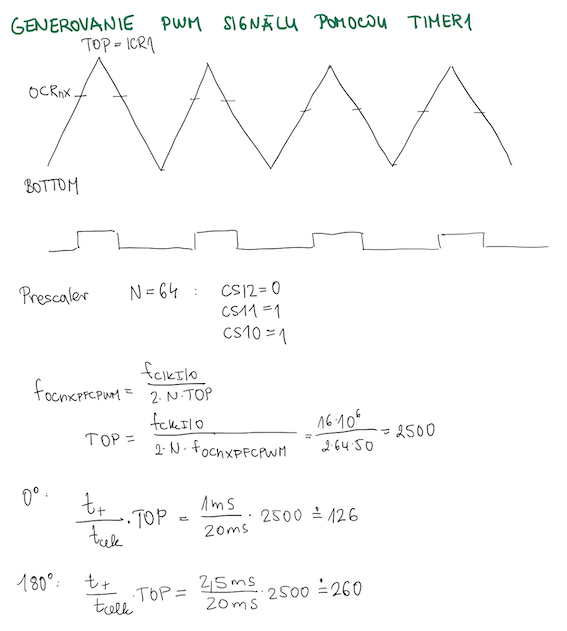 GENEROVANIE PWM SIGNÁLU POMOCOU TIMER1
TOP = ICR1
OCRnx
BOTTOM
Prescaler N = 64 : CS12 = 0
CS11 = 1
CS10 = 1
fOCnxPFCPWM = fclkI/O / 2·N·TOP
TOP = fclkI/O / 2·N·fOCnxPFCPWM = 16·10⁶ / 2·64·50 = 2500
0°: t+ / tcelk · TOP = 1ms / 20ms · 2500 ≐ 126
180°: t+ / tcelk · TOP = 2,5ms / 20ms · 2500 ≐ 260